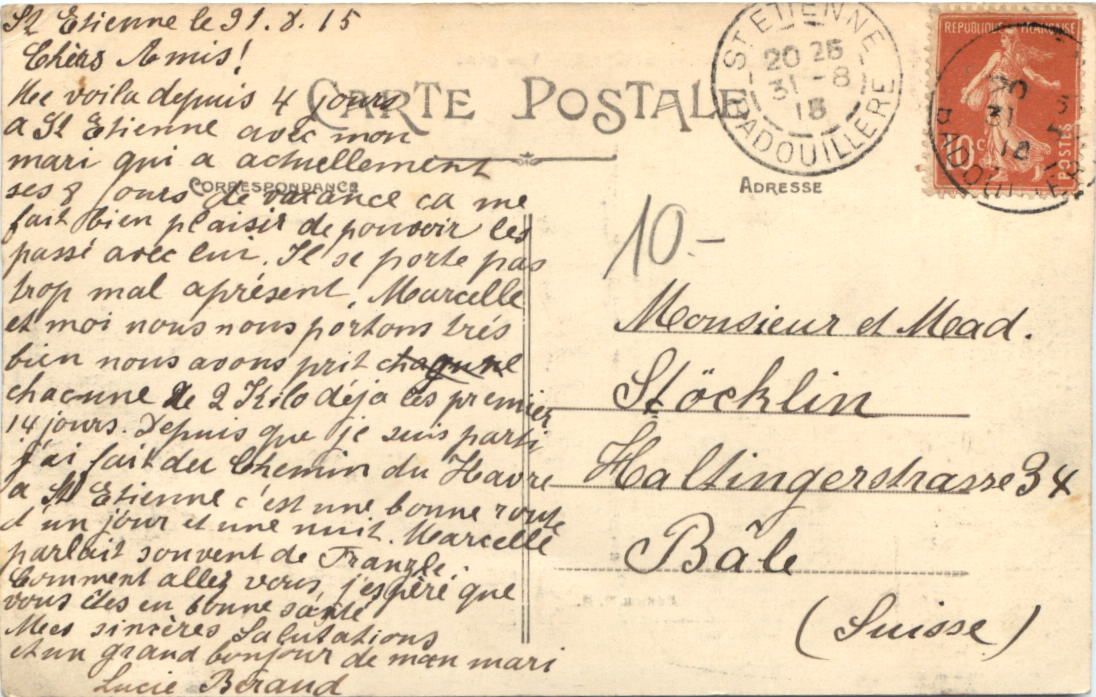 St Etienne le 31.8.15
Chèrs Amis!
Me voila depuis 4 jours
a St Etienne avec mon
mari qui a actuellement
ses 8 jours de vacance ca me
fait bien plaisir de pouvoir les
passé avec lui. Il se porte pas
trop mal aprésent. Marcelle
et moi nous nous portons trés
bien nous avons prit chaqune
chacunne de 2 Kilo déja les premier
14 jours. Depuis que je suis parti
j'ai fait du Chemin du Havre
a St Etienne c'est une bonne route
d'un jour et une nuit. Marcelle
parlait souvent de Franzle.
Comment allez vous, j'espéré que
vous êtes en bonne santé
Mes sincères Salutations
et un grand bonjour de mon mari
Lucie Beraud
CARTE POSTALE
CORRESPONDANCE
ADRESSE
ST ETIENNE
20 25
31 - 8
15
BADOUILLERE
REPUBLIQUE FRANÇAISE
10c
POSTES
10-
Monsieur et Mad.
Stöcklin
Haltingerstrasse 34
Bâle
(Suisse)